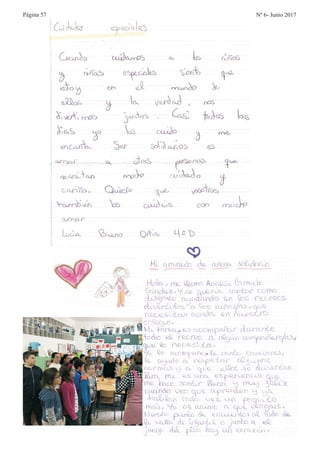 Página 57
Nº 6- Junio 2017
Cuidados especiales
Cuando cuidamos a los niños
y niñas especiales siento que
estoy en el mundo de
ellos y la verdad, nos
divertimos juntos. Casi todos los
días yo los cuido y me
encanta. Ser solidarios es
amar a otras personas que
necesitan mucho cuidado y
cariño. Quiero que vosotros
también los cuidéis con mucho
amor
Lucía Bueno Ortis 4ºD
Mi granito de arena solidario
Hola, me llamo
Sánchez. Y os quería contar como
disfruto ayudando en los recreos
diferentes a los niños/as que
necesitan ayuda en nuestro
colegio.
Mi tarea es acompañar durante
todo el recreo a algún compañero/a
que lo necesita.
Yo lo acompaño, le canto canciones,
le ayudo a respetar algunas
normas y a que ellos se diviertan.
Para mi es una experiencia que
me hace sentir llena y muy feliz
cuando veo que aprenden y ya
hablan cada vez un poquito
más. Yo os animo a que vengáis.
Nuestro punto de encuentro al lado de
la valla de infantil o junto a el
juego del pilla hay un corazón.